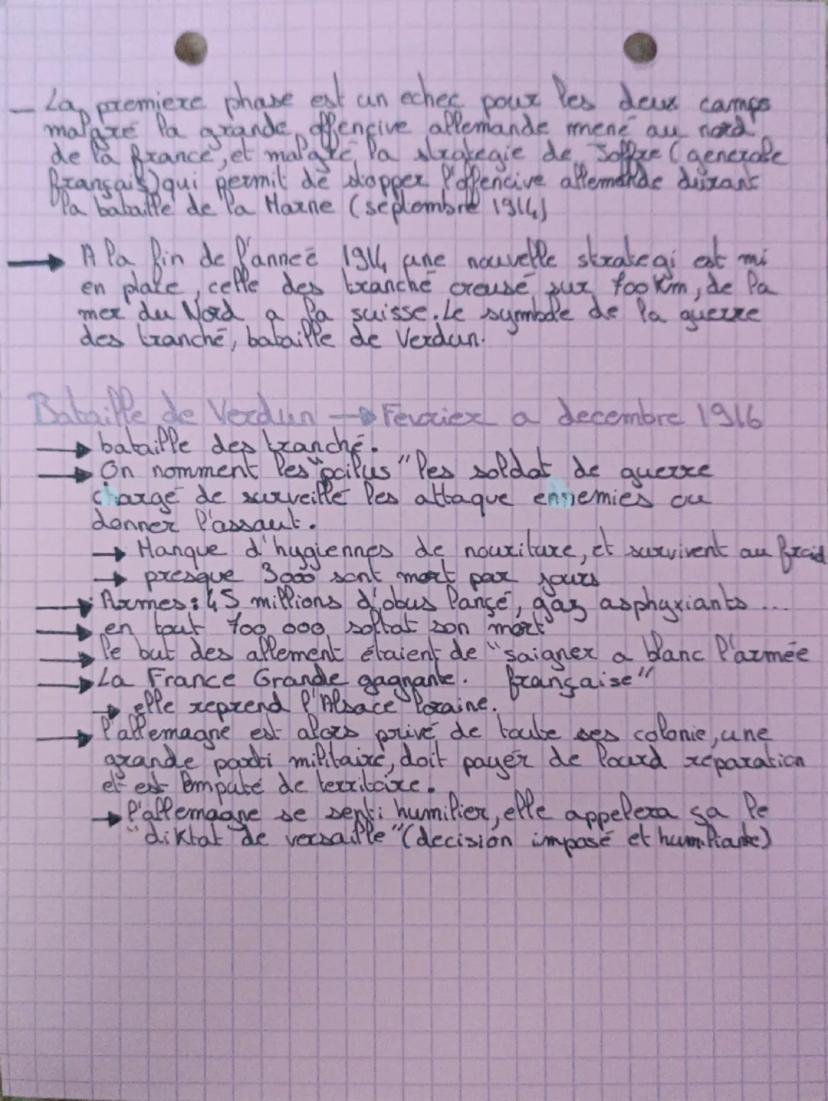 – La premiere phase est un echec pour les deux camps
malgré la grande offencive allemande mené au nord
de la france, et malgré la strategie de Joffre (generale
français) qui permit de stopper l'offencive allemande durant
la bataille de la Marne (septembre 1914)
→ A la fin de l'année 1914 une nouvelle strategi est mi
en place, celle des tranché creusé sur 700 km, de la
mer du Nord a la suisse. Le symbole de la guerre
des tranché, bataille de Verdun.
Bataille de Verdun → Fevrier a decembre 1916
→ bataille des tranché.
→ On nomment les "poilus" les soldat de guerre
chargé de surveillé les attaque ennemies ou
donner l'assaut.
→ Manque d'hygiennes de nouriture, et survivent au froid
→ presque 3000 sont mort par jours
→ Armes : 45 millions d'obus lançé, gaz asphyxiants ...
→ en tout 700 000 soltat son mort
→ le but des allement étaient de "saigner a blanc l'armée
française"
→ La France Grande gagnante.
→ elle reprend l'Alsace Loraine.
→ l'allemagne est alors privé de toute ses colonie, une
grande parti militaire, doit payer de lourd réparation
et est emputé de territoire.
→ l'allemagne se senti humilier, elle appelera sa le
"diktat de versaille" (decision imposé et humiliante)